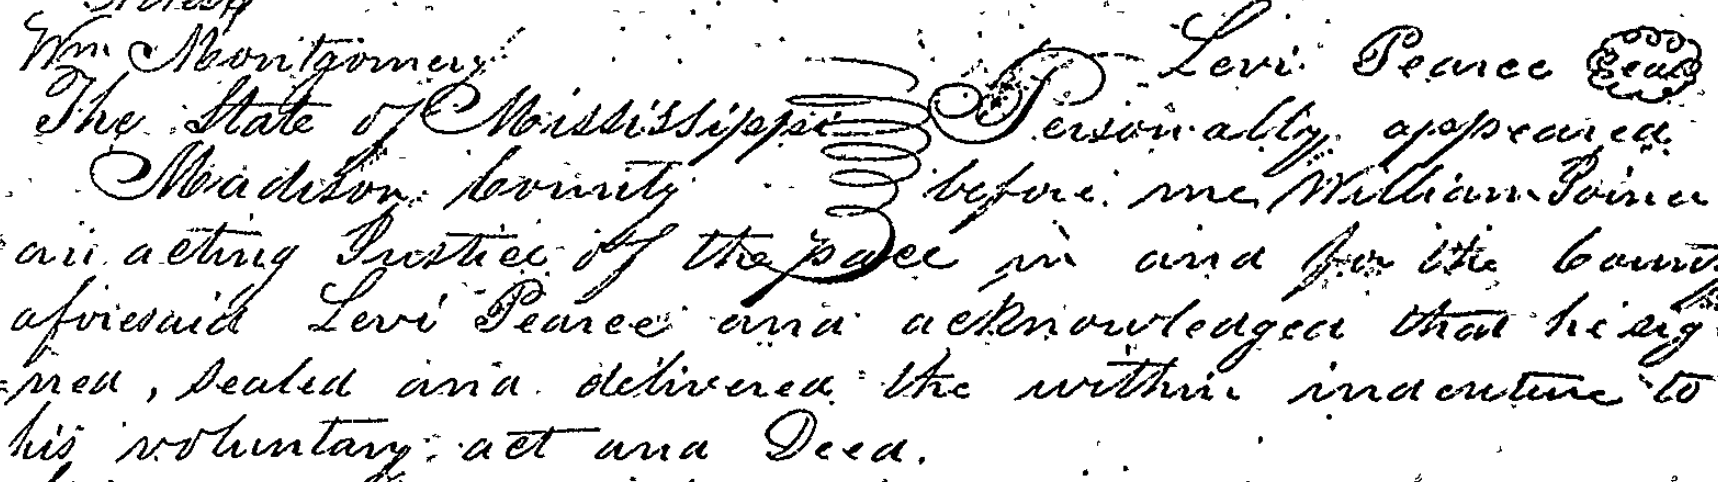 Wm Montgomery Levi Pearce Seal
The State of Mississippi Personally appeared
Madison County before me William Poiner
an acting Justice of the peace in and for the County
aforesaid Levi Pearce and acknowledged that he sig
=ned, sealed and delivered the within indenture to
his voluntary act and Deed.